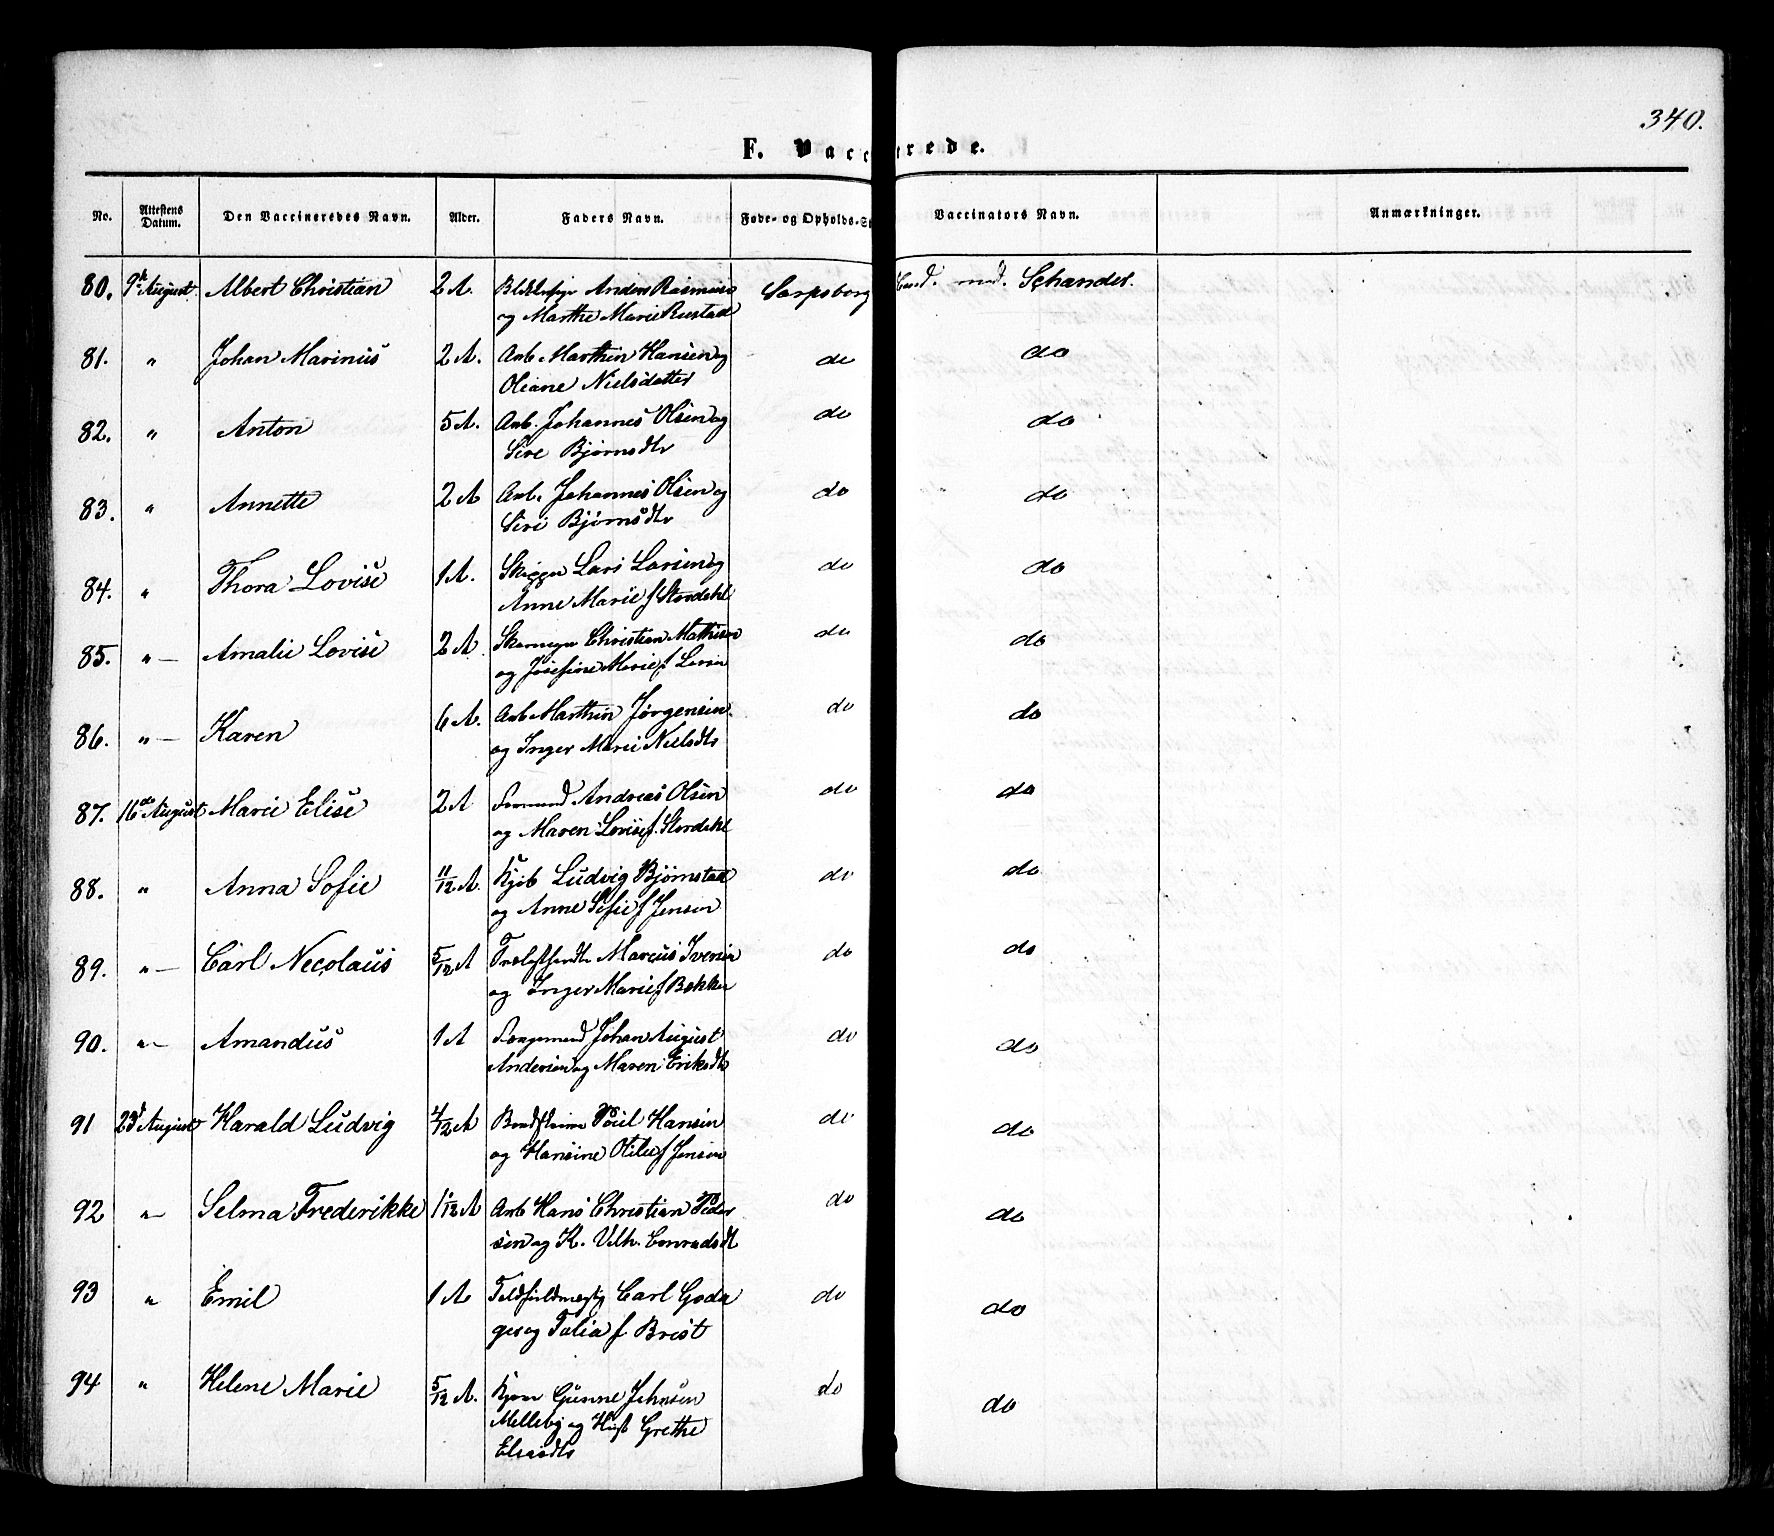 340.
F. Vacc
rede.
No. Attestens Datum. Den Vaccineredes Navn. Alder. Faders Navn. Føde- og Opholds-St Vaccinators Navn. Anmærkninger.
80. 9de August Albert Christian 2 A. Anders Rasmus Sarpsborg Cand. med. Schander.
og Marthe Marie Rustad
81. " Johan Marinus 2 A. Arb. Marthin Hansen og do do
Oleane Nielsdatter
82. " Anton 5 A. Arb. Johannes Olsen og do do
Sire Bjørnsdtr
83. " Annette 2 A Arb. Johannes Olsen og do do
Siri Bjørnsdtr
84. " Thora Lovise 1 A. Lars Larsen og do do
Anne Marie f Stordahl
85. " — Amalie Lovise 2 A. Christian Mathisen do do
og Josefine Marie f Larsen
86. " — Karen 6 A. Arb Marthin Jørgensen do do
og Inger Marie Nielsdtr
87. 16de August Marie Elise 2 A Andreas Olsen do do
og Maren Lovise f. Stordahl
88. " Anna Sofie 11/12 A. Kjøb Ludvig Bjørnstad do do
og Anne Sofie f Jensen
89. " — Carl Necolaus 5/12 A Marcus Iversen do do
og Inger Marie f Bakken
90. " — Amandus 1 A Johan August do do
Andersen og Maren Eriksdtr
91 23d August Harald Ludvig 4/12 A Poul Hansen do do
og Hansine Otilie f Jensen
92 " — Selma Frederikke 1 1/12 A Arb Hans Christian Peder do do
sen og K. Vilh. Conradsdt
93 " Emil 1 A Toldfuldmægtig Carl Goda do do
ges og Talia f Brest
94 " Helene Marie 5/12 A. Gunne Johnsen do do
Melleby og Hust Grethe